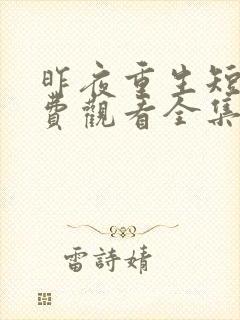 昨夜重生短
費觀看全集
雷詩婧